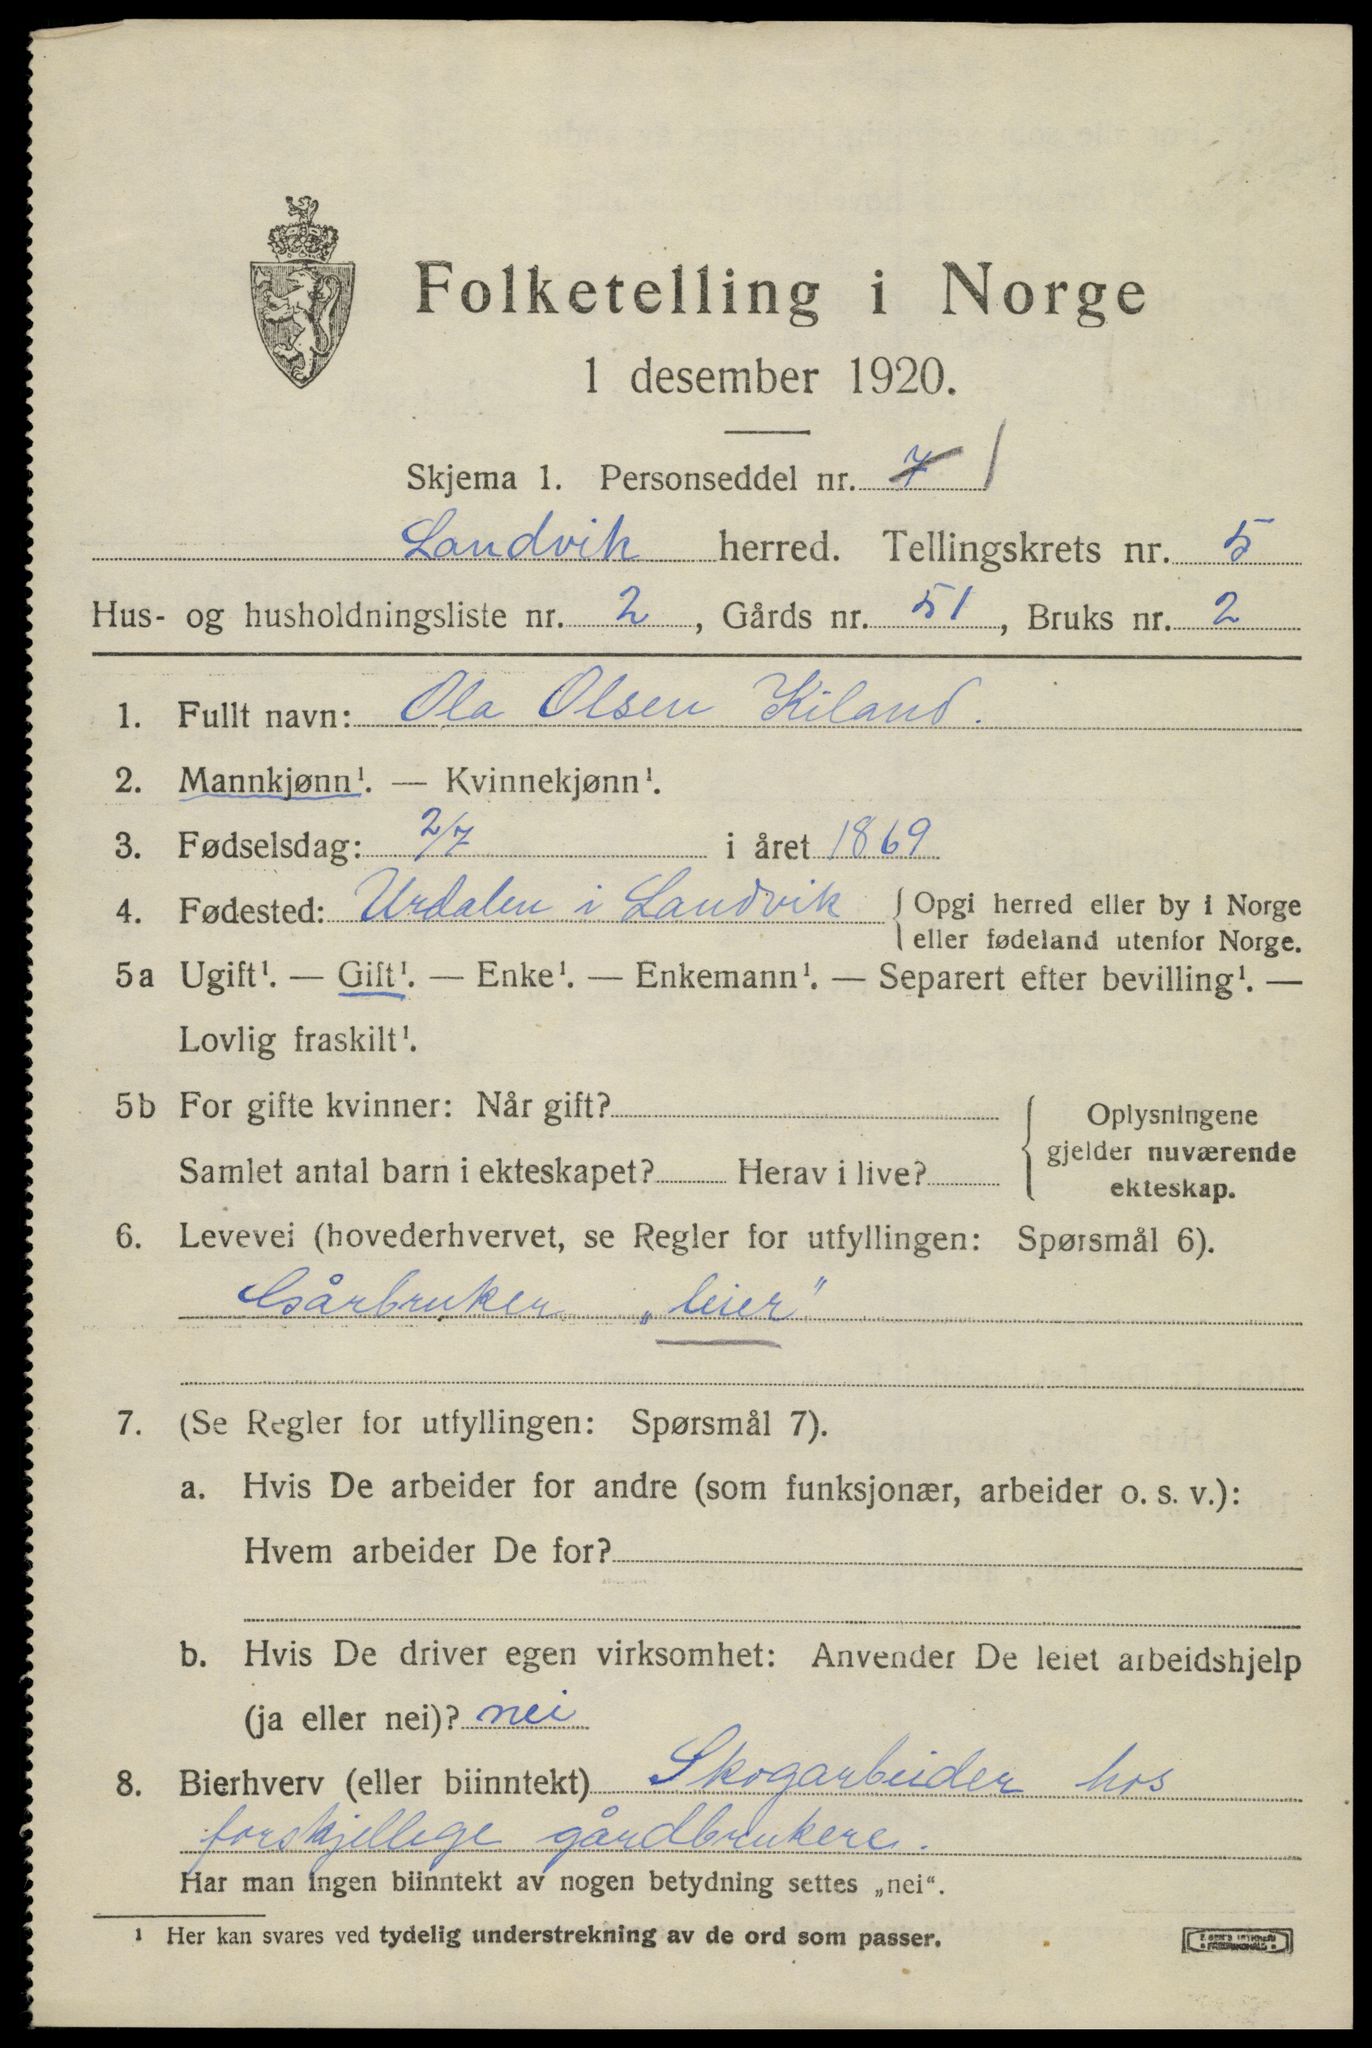 Folketelling i Norge
1 desember 1920.
Skjema 1. Personseddel nr. 7 1
Landvik herred. Tellingskrets nr. 5
Hus- og husholdningsliste nr. 2, Gårds nr. 51, Bruks nr. 2
1. Fullt navn: Ola Olsen Kiland.
2. Mannkjønn¹. — Kvinnekjønn¹.
3. Fødselsdag: 2/7 i året 1869
4. Fødested: Urdalen i Landvik { Opgi herred eller by i Norge
eller fødeland utenfor Norge.
5a Ugift¹. — Gift¹. — Enke¹. — Enkemann¹. — Separert efter bevilling¹. —
Lovlig fraskilt¹.
5b For gifte kvinner: Når gift?
Samlet antal barn i ekteskapet? Herav i live?
{ Oplysningene
gjelder nuværende
ekteskap.
6. Levevei (hovederhvervet, se Regler for utfyllingen: Spørsmål 6).
Gårbruker „leier”
7. (Se Regler for utfyllingen: Spørsmål 7).
a. Hvis De arbeider for andre (som funksjonær, arbeider o. s. v.):
Hvem arbeider De for?
b. Hvis De driver egen virksomhet: Anvender De leiet arbeidshjelp
(ja eller nei)? nei
8. Bierhverv (eller biinntekt) Skogarbeider hos
forskjellege gårdbrukere.
Har man ingen biinntekt av nogen betydning settes „nei“.
¹ Her kan svares ved tydelig understrekning av de ord som passer.